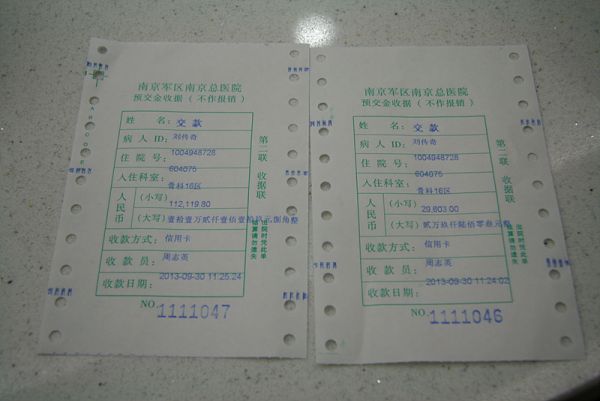 南京军区南京总医院
预交金收据（不作报销）
姓 名： 交 款
病 人 ID： 刘传奇
住 院 号： 1004948728
604675
入住科室： 骨科16区
人民币 （小写） 112,119.80
（大写） 壹拾壹万贰仟壹佰壹拾玖元捌角整
收款方式： 信用卡
收 款 员： 周志英
收款日期： 2013-09-30 11:25:24
NO. 1111047
第二联 收据联
出院时凭此单
结算请勿遗失
南京军区南京总医院
预交金收据（不作报销）
姓 名： 交 款
病 人 ID： 刘传奇
住 院 号： 1004948728
604675
入住科室： 骨科16区
人民币 （小写） 29,603.00
（大写） 贰万玖仟陆佰零叁元整
收款方式： 信用卡
收 款 员： 周志英
收款日期： 2013-09-30 11:24:02
NO. 1111046
第二联 收据联
出院时凭此单
结算请勿遗失